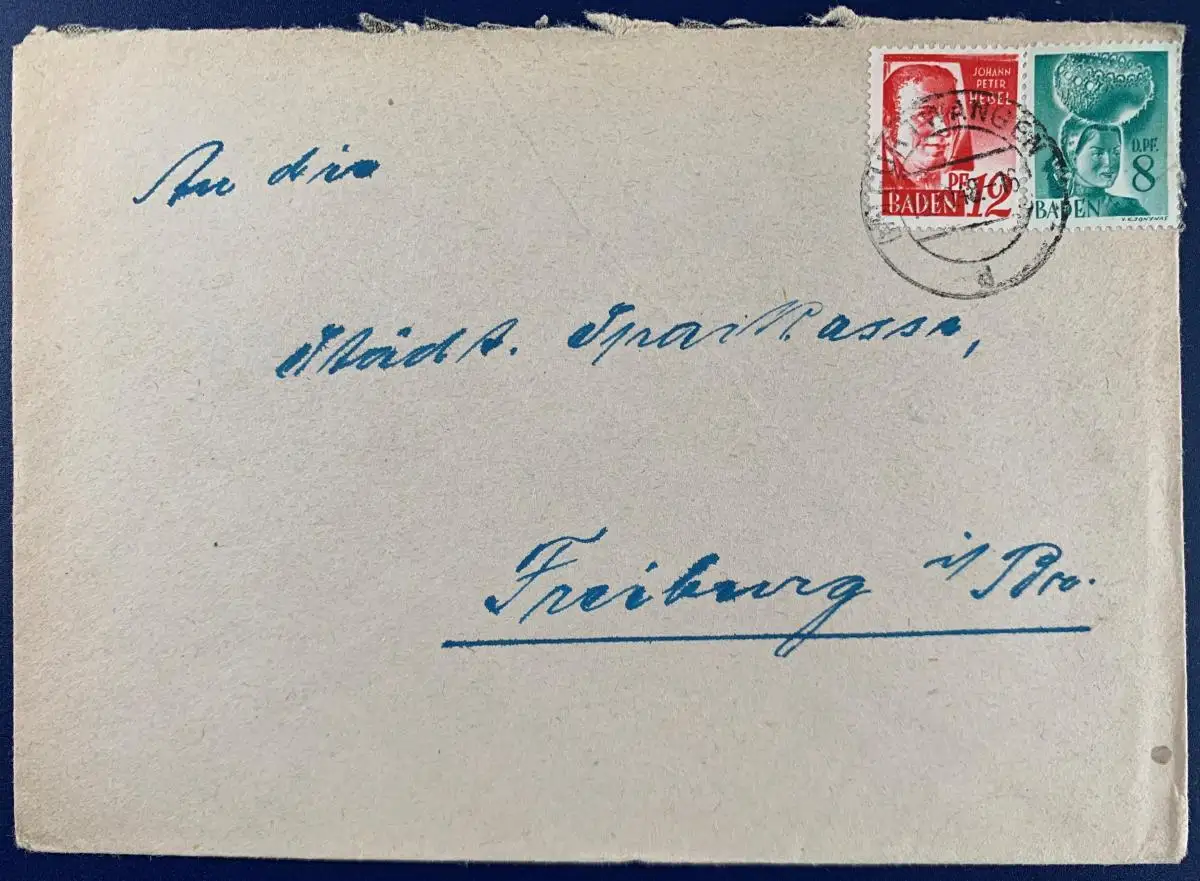 JOHANN
PETER
HEBEL
PF.
BADEN 12
D.PF.
8
BADEN
V.K.JONYNAS
An die
Städt. Sparkasse,
Freiburg i/Br.